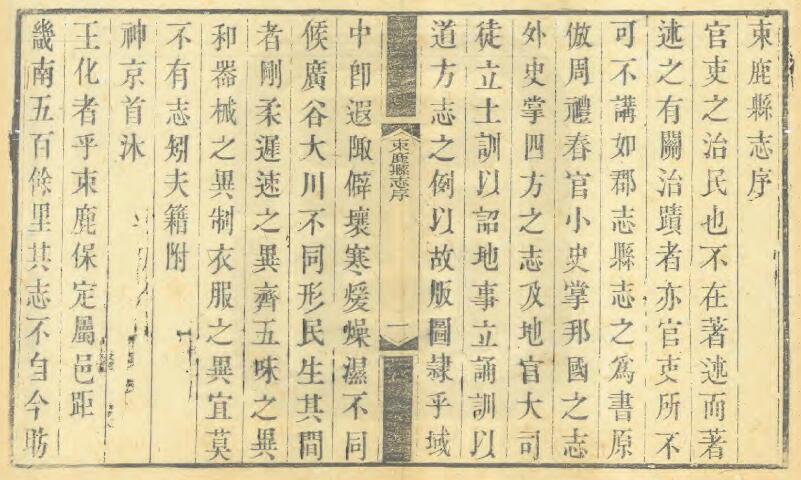 束鹿縣志序
官吏之治民也不在著述而著
述之有關治蹟者亦官吏所不
可不講如郡志縣志之爲書原
倣周禮春官小史掌邦國之志
外史掌四方之志及地官大司
徒立土訓以詔地事立誦訓以
道方志之例以故版圖隷乎域
束鹿縣志序
一
中卽遐陬僻壤寒煖燥濕不同
候廣谷大川不同形民生其間
者剛柔遲速之異齊五味之異
和器械之異制衣服之異宜莫
不有志矧夫籍附
神京首沐
王化者乎束鹿保定屬邑距
畿南五百餘里其志不自今昉